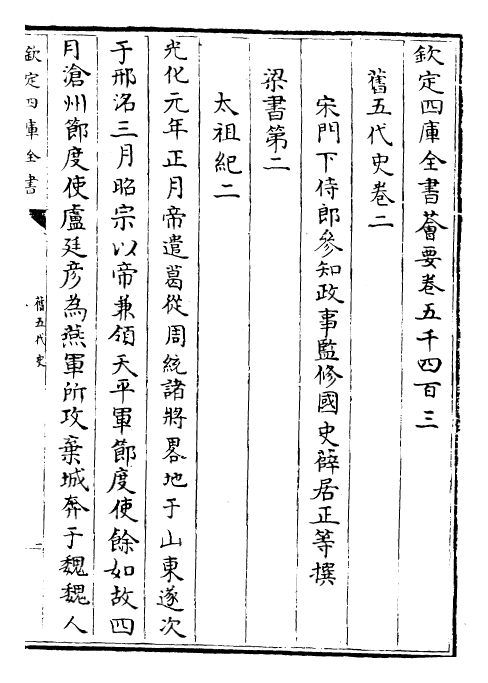 欽定四庫全書薈要卷五千四百三
舊五代史卷二
宋門下侍郎參知政事監修國史薛居正等撰
梁書第二
太祖紀二
光化元年正月帝遣葛從周統諸將畧地于山東遂次
于邢洺三月昭宗以帝兼領天平軍節度使餘如故四
月滄州節度使盧廷彥為燕軍所攻棄城奔于魏魏人
欽定四庫全書
舊五代史